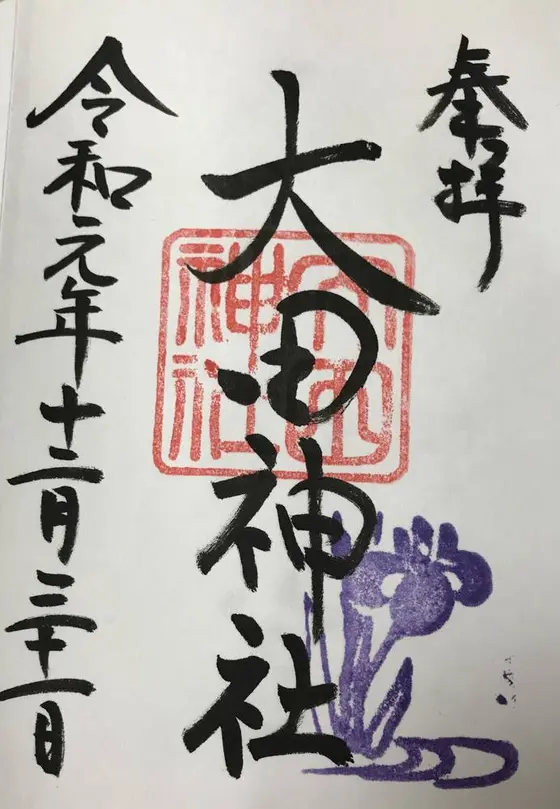 奉拝
大田神社
大田神社
令和元年十二月三十一日